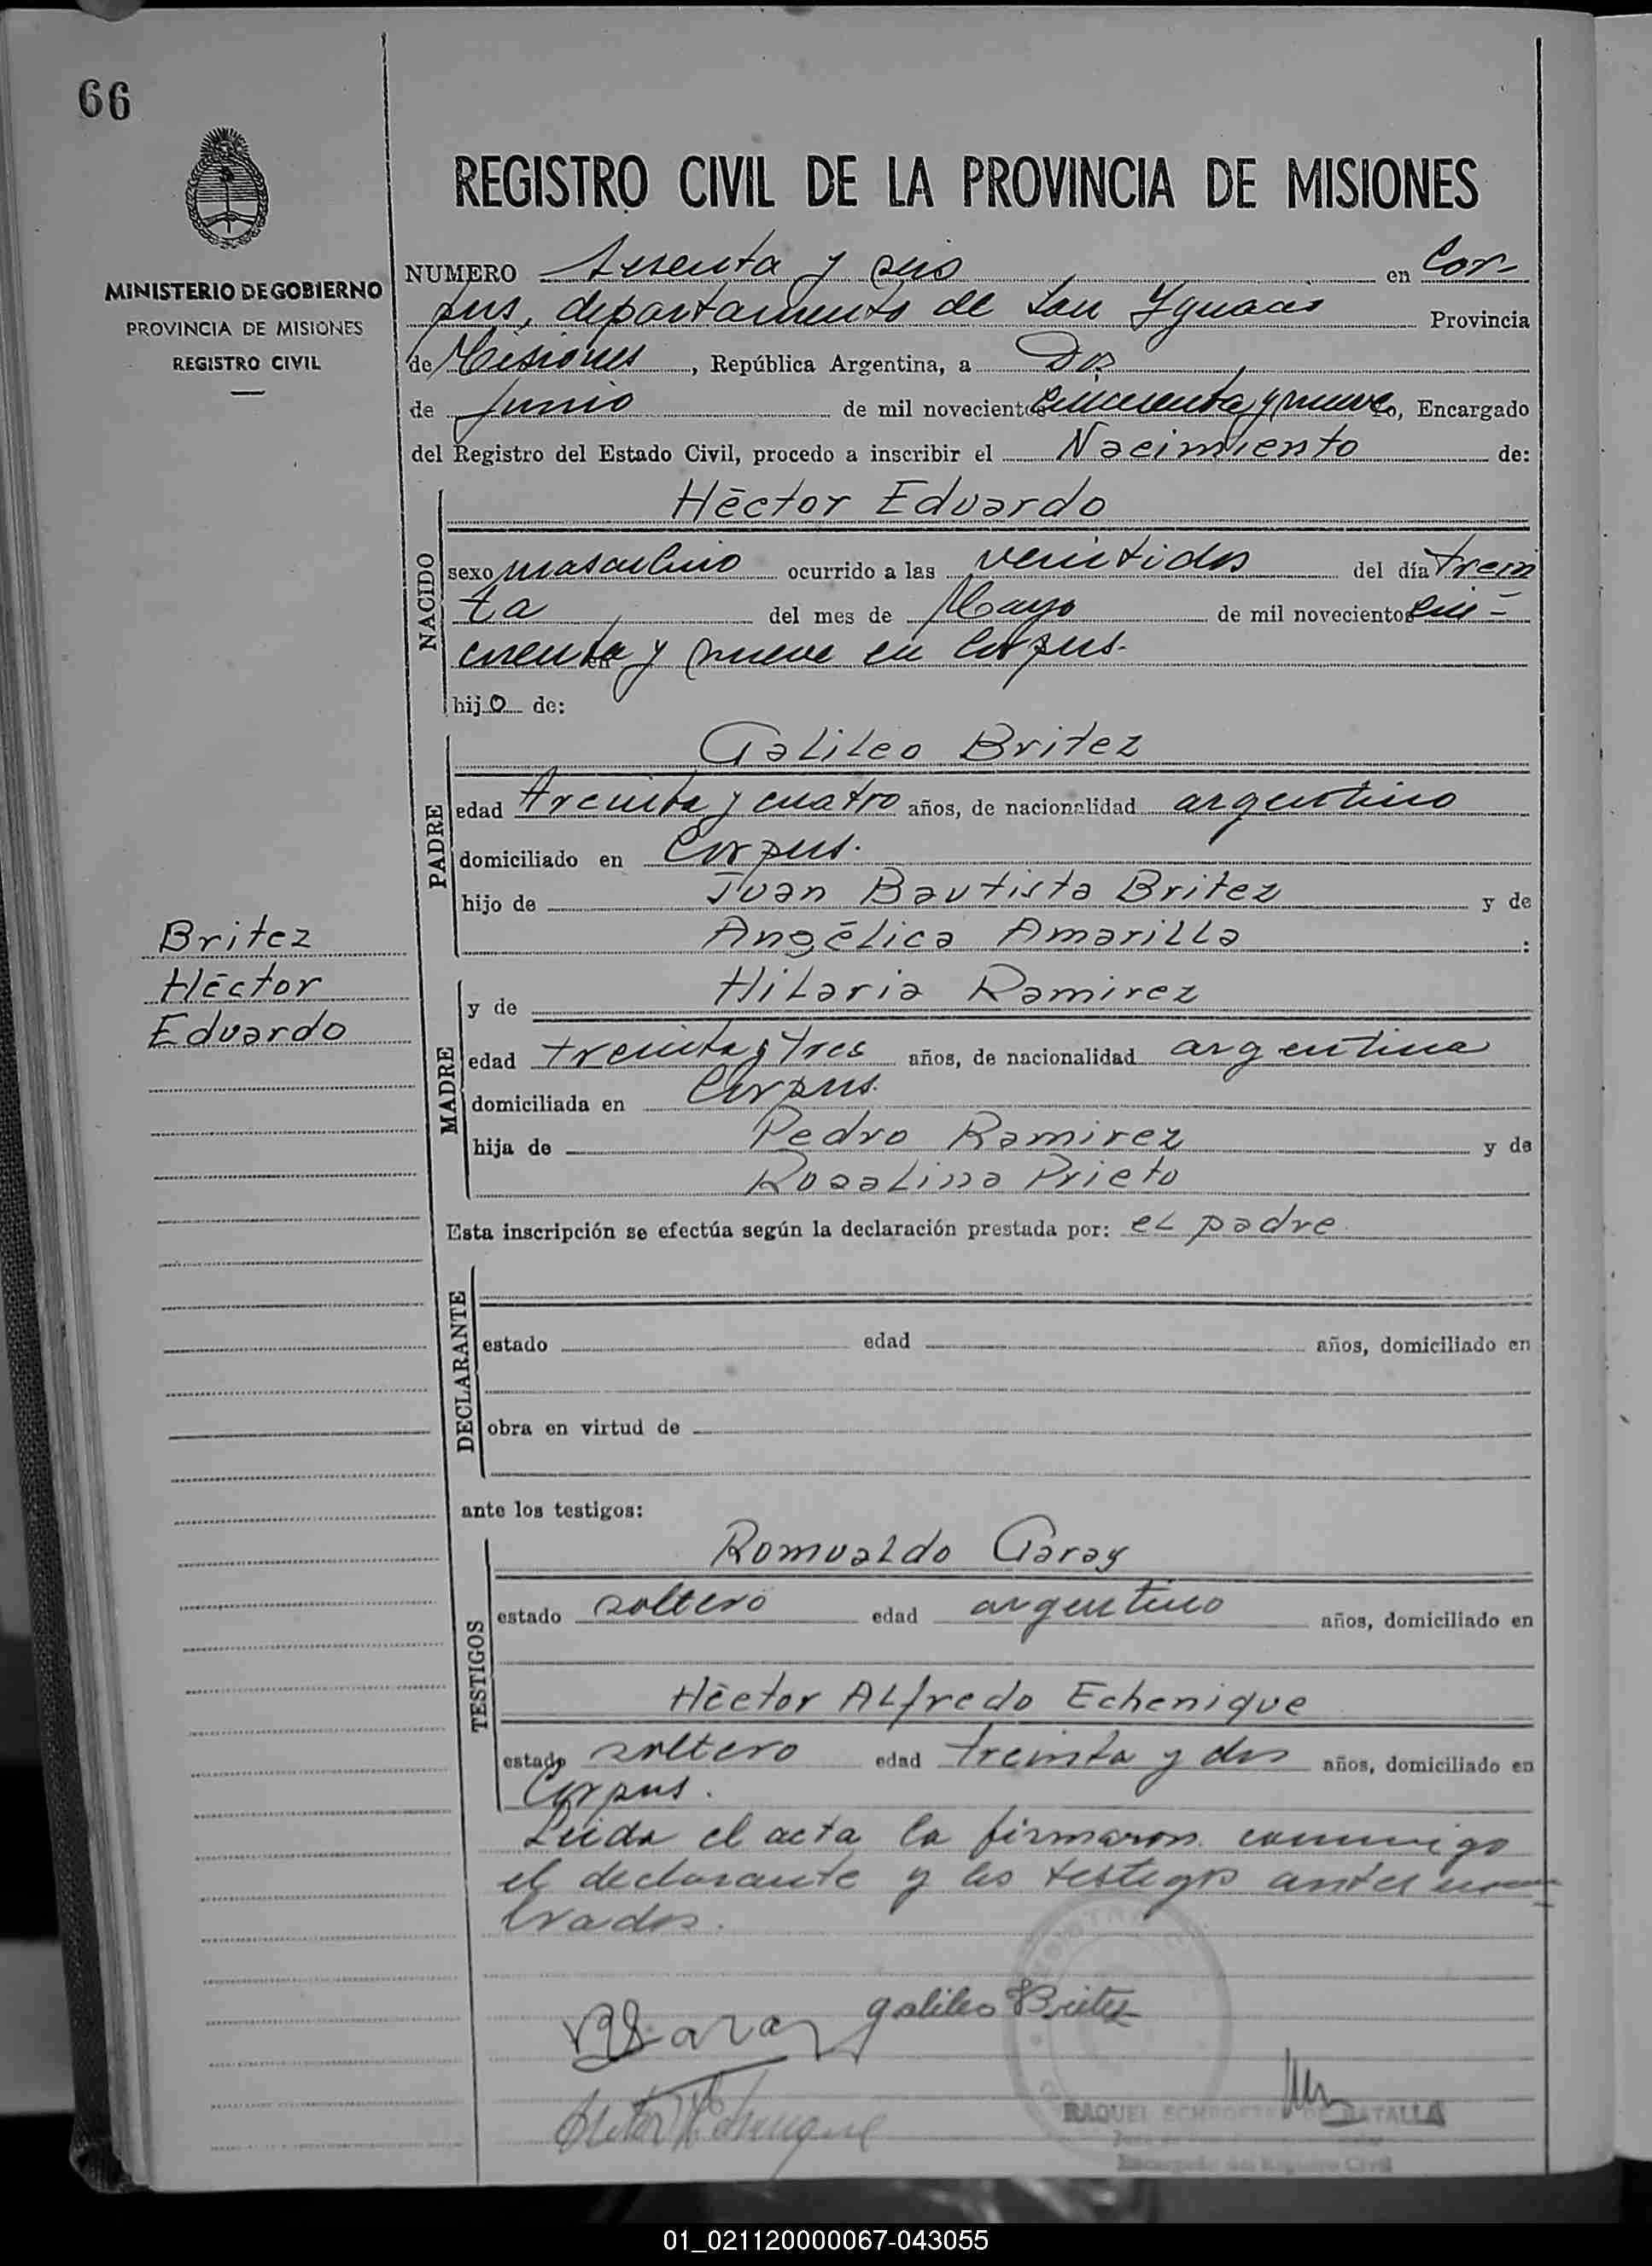 66
REGISTRO CIVIL DE LA PROVINCIA DE MISIONES
MINISTERIO DE GOBIERNO
PROVINCIA DE MISIONES
REGISTRO CIVIL
NUMERO Sesenta y seis en Cor-
pus, departamento de San Ygnacio Provincia
de Misiones, República Argentina, a Dos
de Junio de mil novecientos cincuenta y nueve yo, Encargado
del Registro del Estado Civil, procedo a inscribir el Nacimiento de:
NACIDO
Héctor Eduardo
sexo masculino ocurrido a las veintidos del día trein
ta del mes de Mayo de mil novecientos cin-
cuenta y nueve en Corpus.
hijo de:
PADRE
Galileo Britez
edad treinta y cuatro años, de nacionalidad argentino
domiciliado en Corpus.
hijo de Juan Bautista Britez y de
Angélica Amarilla :
Britez
Héctor
Eduardo
MADRE
y de Hilaria Ramirez
edad treinta y tres años, de nacionalidad argentina
domiciliada en Corpus.
hija de Pedro Ramirez y de
Rosalina Prieto
Esta inscripción se efectúa según la declaración prestada por: el padre
DECLARANTE
estado edad años, domiciliado en
obra en virtud de
ante los testigos:
TESTIGOS
Romualdo Garay
estado soltero edad argentino años, domiciliado en
Héctor Alfredo Echenique
estado soltero edad treinta y dos años, domiciliado en
Corpus.
Leida el acta la firmaron conmigo
el declarante y los testigos antes nom-
brados.
Galileo Britez
RAQUEL DE BATALLA
Encargada del Registro Civil
01_021120000067-043055